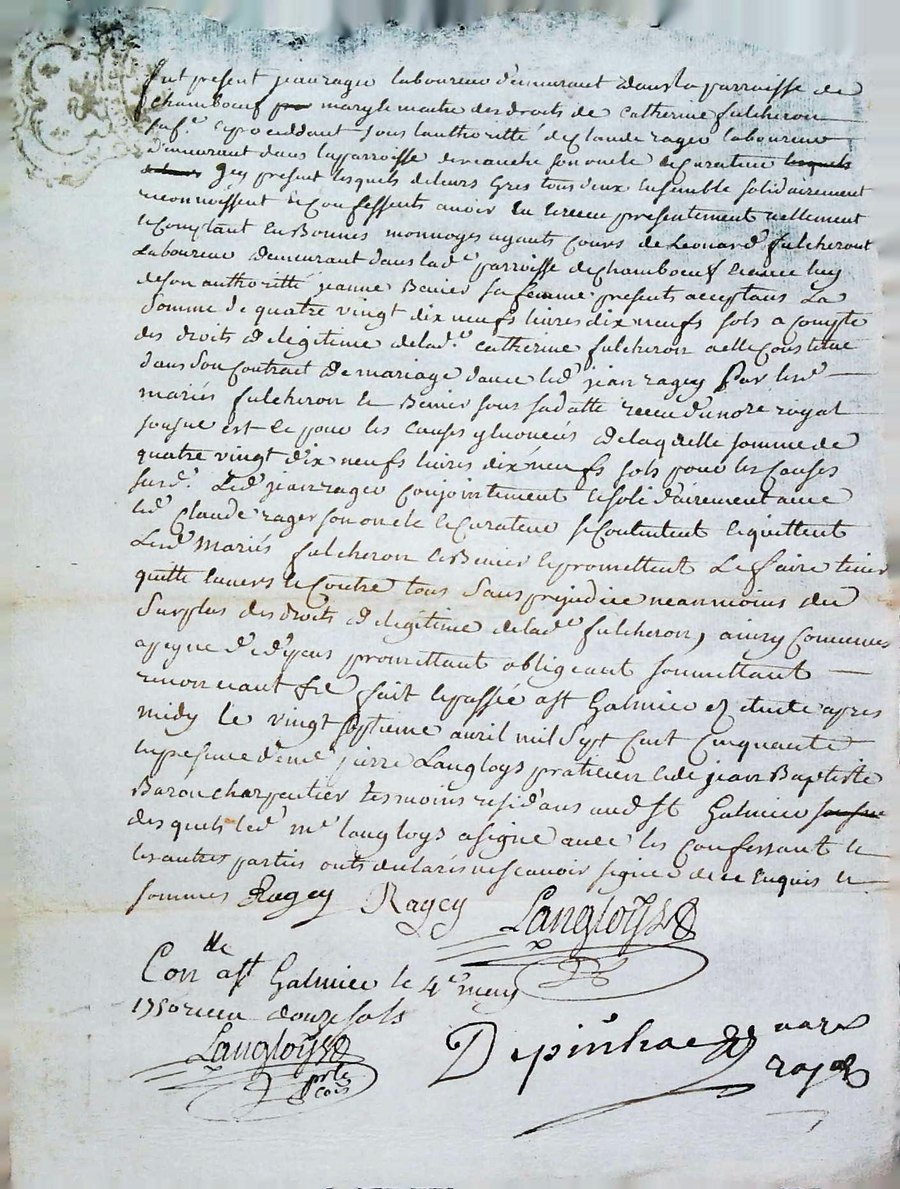 fut present jean ragey laboureur demeurant dans la parroisse de
chamboeuf mary et maitre des droits de catherine fulcheron
sa fe. procedant sous lauthoritté de Claude ragey laboureur
demeurant dans la parroisse de son oncle et curateur
icy present lesquels de leurs gres tous deux ensemble solidairement
reconnoissent et confessent avoir eu et receu presentement reellement
et comptant en bonnes monnoyes ayants cours de Leonard fulcheront
Laboureur demeurant dans lad.e parroisse de chamboeuf et avec luy
de son authoritté jeanne Benier sa femme presents acceptans La
somme de quatre vingt dix neufs livres dix neufs sols a compte
des droits de legitime de lad.e Catherine fulcheron a elle constitué
dans son contract de mariage avec led jean ragey Par lesd
mariés fulcheron et Benier sous sa datte receu du nore royal
sousne est ce pour les causes y enoncés de laquelle somme de
quatre vingt dix neufs livres dix neufs sols pour les causes
susd. Led jean ragey conjointement et solidairement avec
led Claude ragey son oncle et curateur se contentent et quittent
Lesd Mariés fulcheron et Benier et promettent Le faire tenir
quitte envers et contre tous Sans prejudice neanmoins du
Surplus des droits de legitime de lad.e fulcheron, ainsy convenus
a peyne de d promettant obligeant soumettant
renonceant &c fait et passée a St Galmier etude apres
midy le vingt septieme avril mil sept cent cinquante
en presence de me pierre Langloys praticien et de jean Baptiste
Baron charpentier tesmoins residans aud St Galmier
desquels led me langloys a signé avec les confessant et
les autres parties onts declarés ne scavoir signer de ce enquis et
sommés Ragey Ragey Langloys
Conlle a St Galmier le 4e may
1750 receu douze sols
Langloys
Depinhac nore
royal